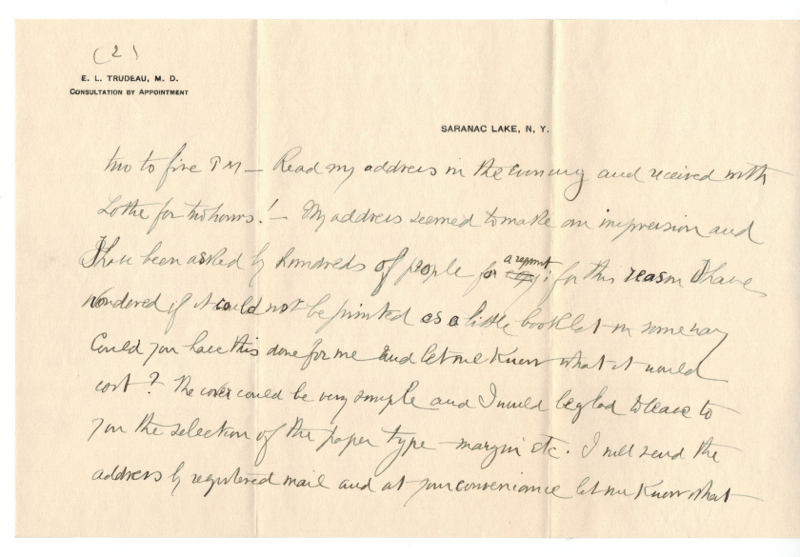 (2)
E. L. TRUDEAU, M. D.
CONSULTATION BY APPOINTMENT
SARANAC LAKE, N. Y.
two to five P M — Read my address in the evening and received with
Lottie for two hours! — My address seemed to make an impression and
I have been asked by hundreds of people for a reprint; for this reason I have
wondered if it could not be printed as a little booklet in some way
Could you have this done for me and let me know what it would
cost? The cover could be very simple and I would be glad to leave to
you the selection of the paper type – margin etc. I will send the
address by registered mail and at your convenience let me know what